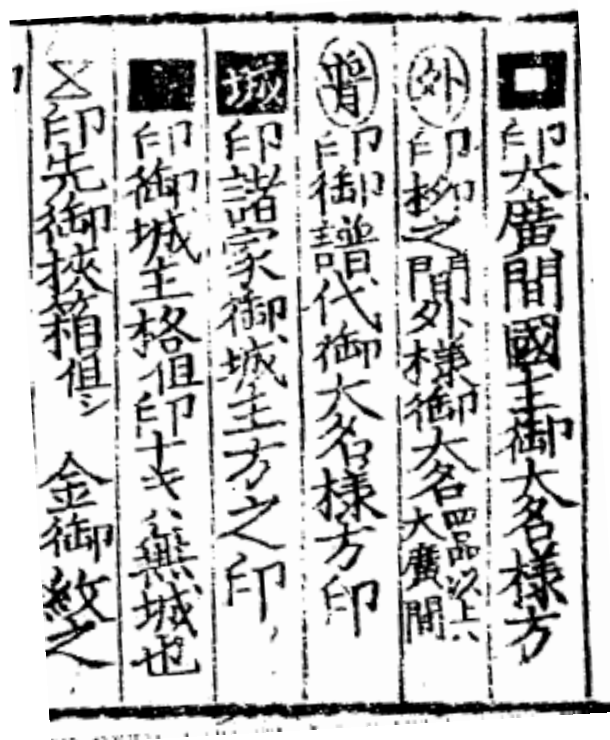 印大廣間國主御大名様方
外印柳之間外様御大名四品以上ハ大廣間
譜印御譜代御大名様方印
城印諸家御城主方之印
印御城主格但印ナキハ無城也
印先御挾箱但シ 金御紋之